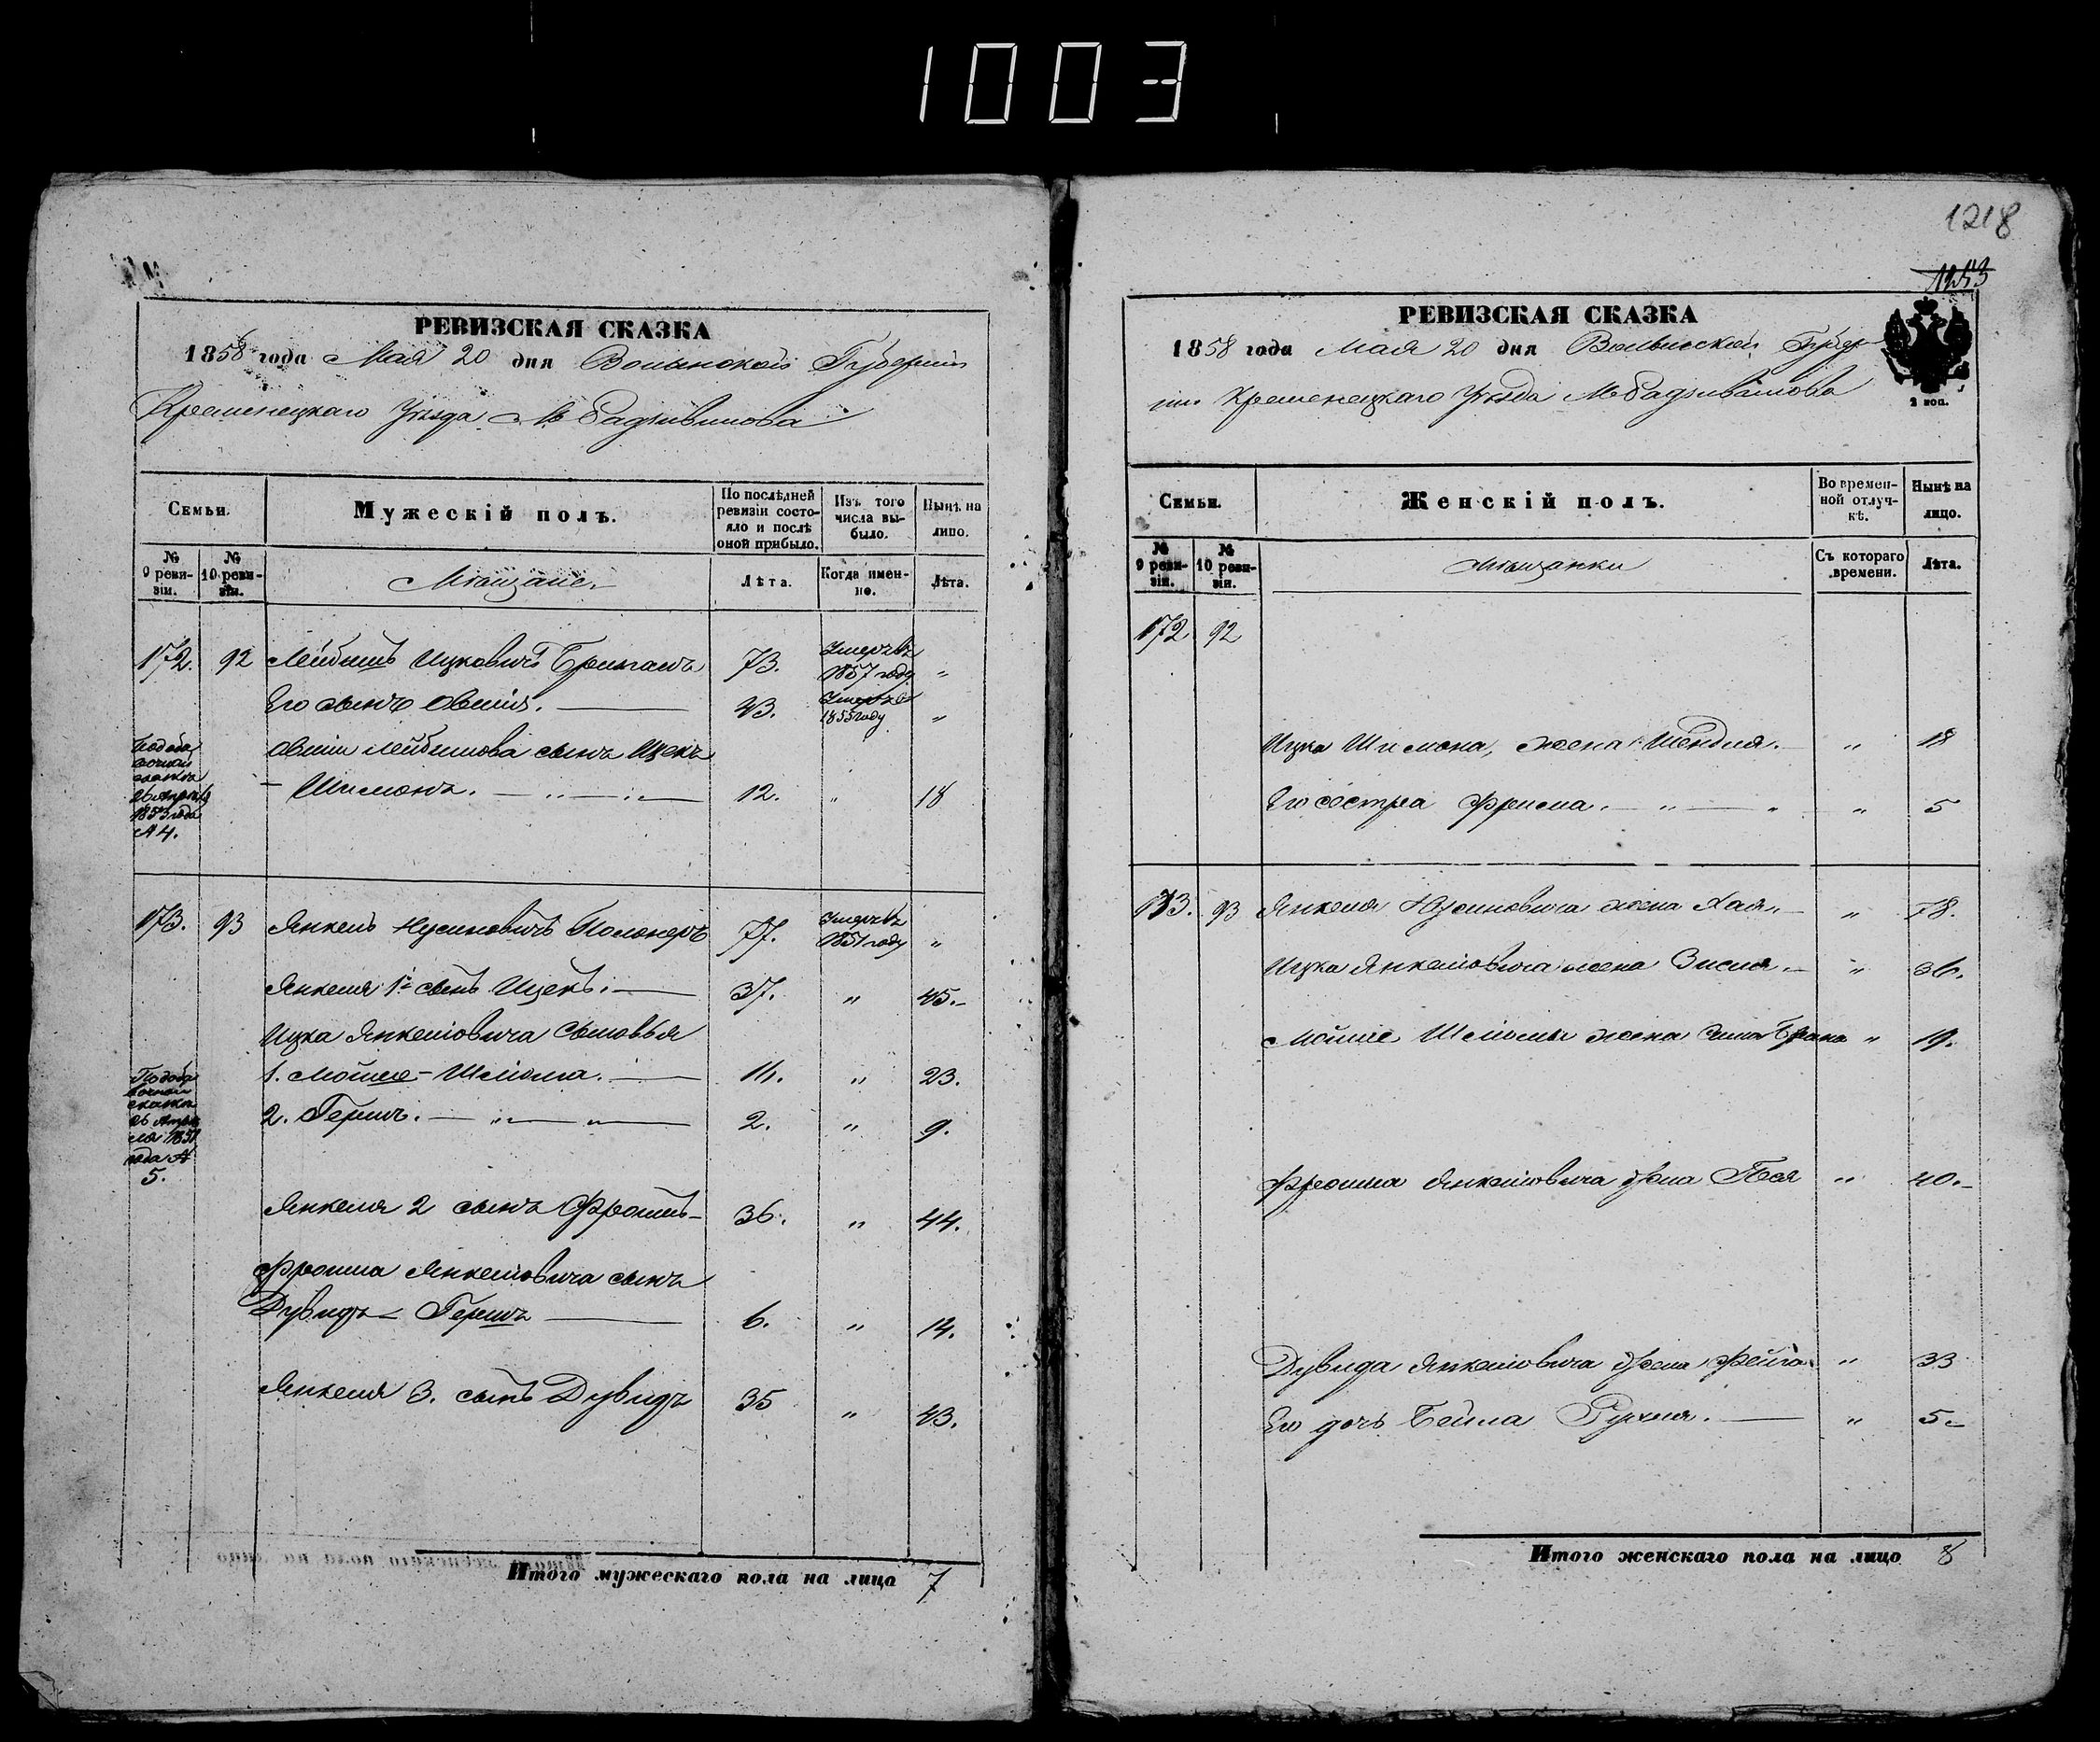 1003
РЕВИЗСКАЯ СКАЗКА
1858 года Мая 20 дня Волынской Губернии
Кременецкаго Уѣзда М Радзивилова
Семьи.
Мужескій полъ.
По послѣдней ревизіи состояло и послѣ оной прибыло.
Изъ того числа выбыло.
Нынѣ на лицо.
№ 9 ревизіи.
№ 10 ревизіи.
Мѣщане
Лѣта.
Когда именно.
Лѣта.
172. 92 Лейбишъ Ицковичъ 73. Умеръ въ 1857 году "
Его сынъ Овшія. 43. Умеръ въ 1855 году "
Овшіи Лейбишова сынъ Ицекъ
- Шимонъ. 12. " 18
26 Апрѣля
№ 4.
173. 93 Янкель Нусиновичъ 77. Умеръ въ 1851 году "
Янкеля 1й сынъ Ицекъ. 37. " 45.
Ицка Янкелiовича Сыновья
1. Мойше-Шлiома. " 23.
2. Гершъ. 2. " 9.
5.
Янкеля 2 сынъ Фроимъ 36. " 44.
Фроима Янкелiовича сынъ
Дувидъ - Гершъ 6. " 14.
Янкеля 3. сынъ Дувидъ 35 " 43.
Итого мужескаго пола на лицо 7
1218
1253
РЕВИЗСКАЯ СКАЗКА
1858 года Мая 20 дня Волынской Губер
нiи Кременецкаго Уѣзда М Радзивилова
2 коп.
Семьи.
Женскій полъ.
Во временной отлучкѣ.
Нынѣ на лицо.
№ 9 ревизіи.
№ 10 ревизіи.
Мѣщанки
Съ котораго времени.
Лѣта.
172. 92
Ицка Шимона, жена Шендля. " 18
Его сестра " 5
173. 93 Янкеля Нусиновича жена Хая. " 78.
Ицка Янкелiовича жена Зисля. " 36.
Мойше Шлiомы жена " 19.
Фроима Янкелiовича жена Песя " 40.
Дувида Янкелiовича жена Фейга " 33
Его дочь Бейла Рухля. " 5
Итого женскаго пола на лицо 8